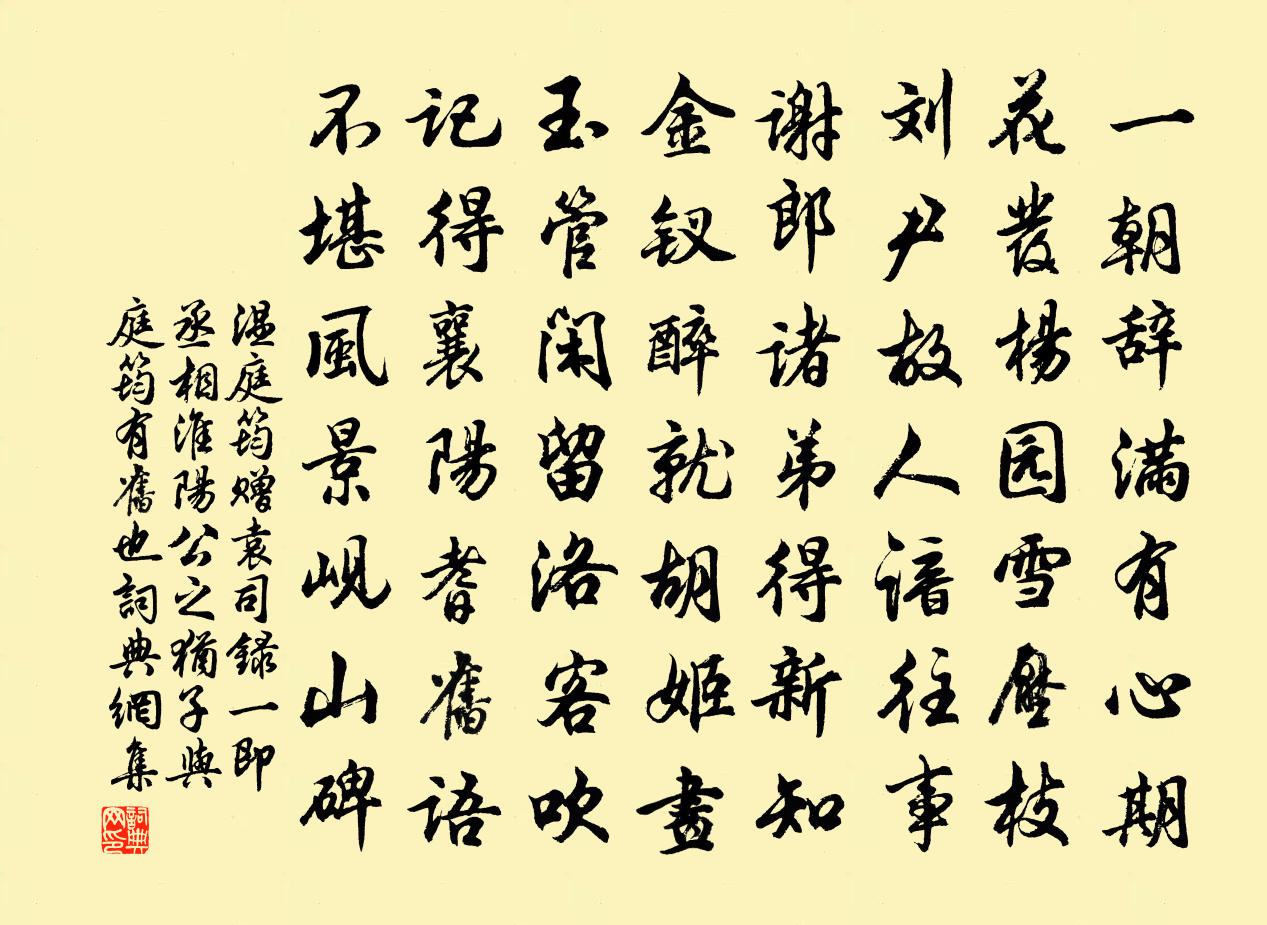 一朝辞满有心期
花發楊园雪壓枝
刘尹故人谙往事
谢郎诸弟得新知
金钗醉就胡姬畫
玉管闲留洛客吹
记得襄陽耆舊语
不堪風景岘山碑
温庭筠赠袁司録一即
丞相淮陽公之猶子與
庭筠有舊也詞典網集
詞典网印